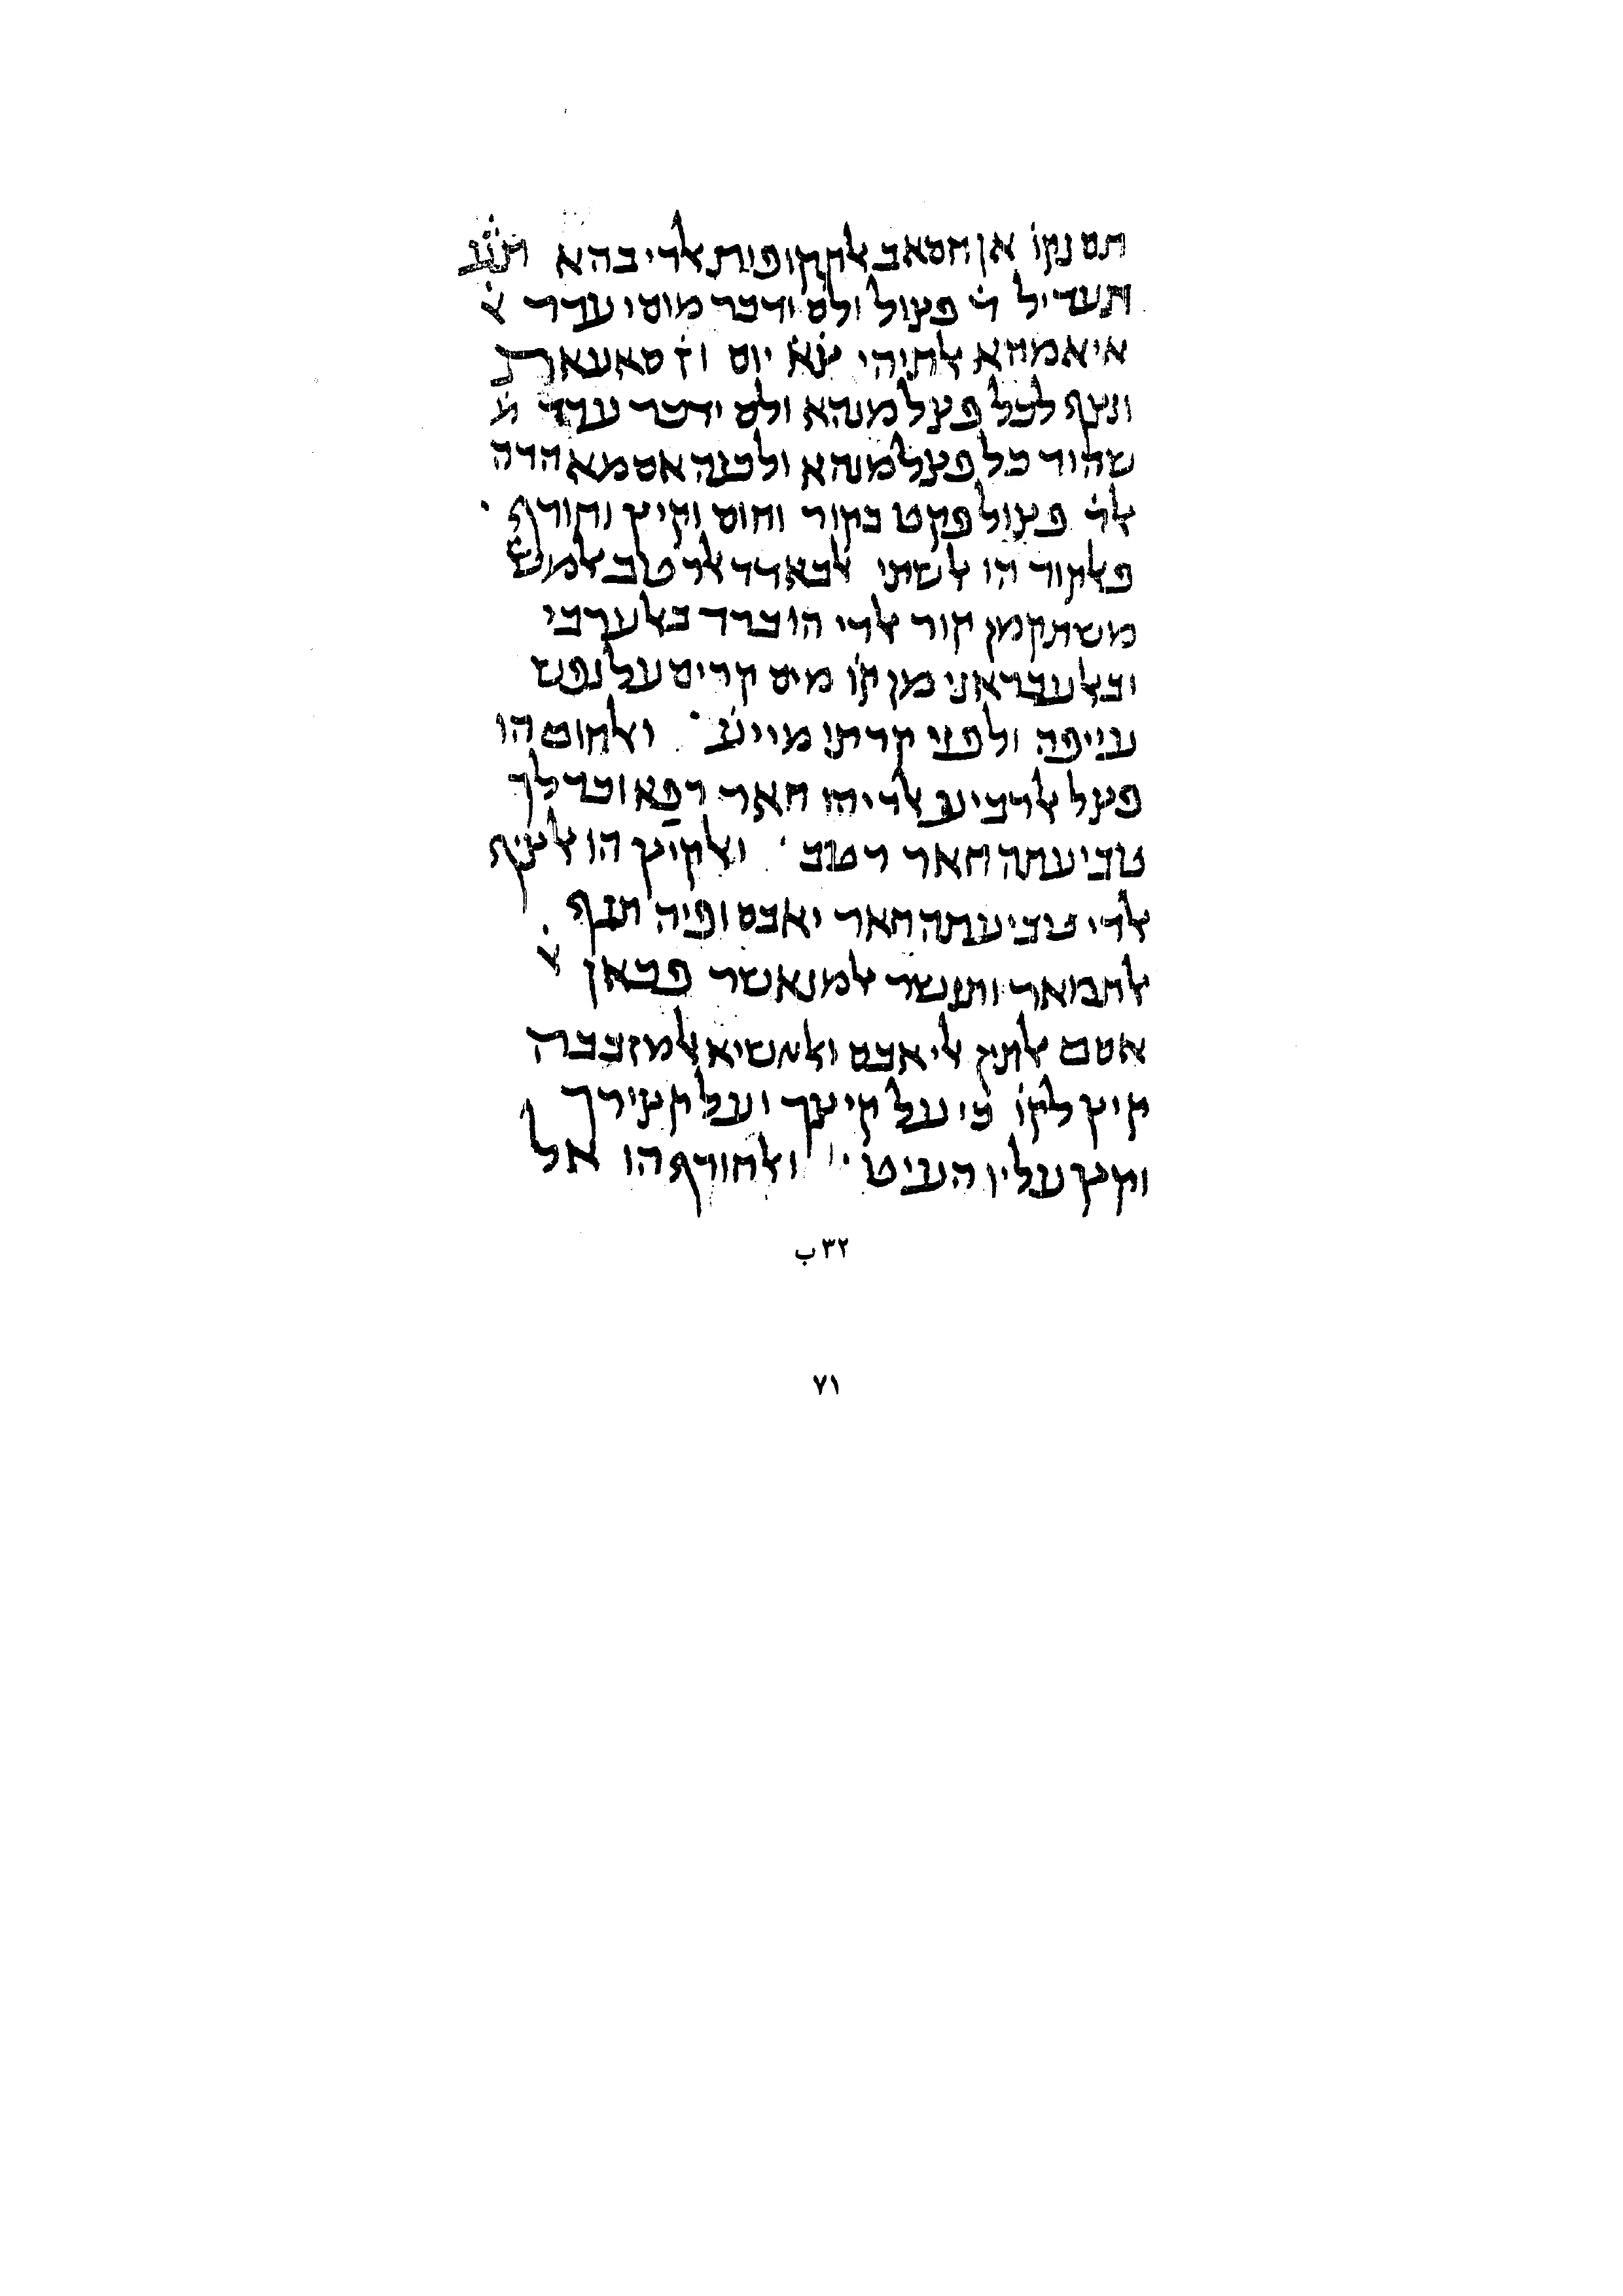 תם נקו̇ אן חסאב אלתקופות אלדי בהא תע̇
תעדיל ד̇ פצול ולם ידכר מוסי עדד א̇
איאמהא אלתי הי צ̇א̇ יום וז̇ סאעאת
ונצף לכל פצל מנהא ולם ידכר עדד
שהור כל פצל מנהא ולכנה אסמא הדה
אלד̇ פצול פקט בקור וחום וקיץ וחורף ·
פאלקור הו אלשתי אלבארד אלרטב אלמש̇
משתק מן קור אלדי הו ברד באלערבי
ובאלעבראני מן קו̇ מים קרים על נפש
עייפה ולפני קרתו מי יע̇ · ואלחום הו
פצל אלרביע אלדי הו חאר דפא וכדלך
טביעתה חאר רטב · ואלקיץ הו אלציף
אלדי טביעתה חאר יאבס ופיה תנצף
אלתמאר ותנשר אלמנאשר פכאן א̇
אסם אלתין אליאבס ואלאשיא אלמזבבה
קיץ לקו̇ כי על קיצך ועל קצירך
וקץ עליו העיט · ואלחורף הו אל
٣٢ب
٧١